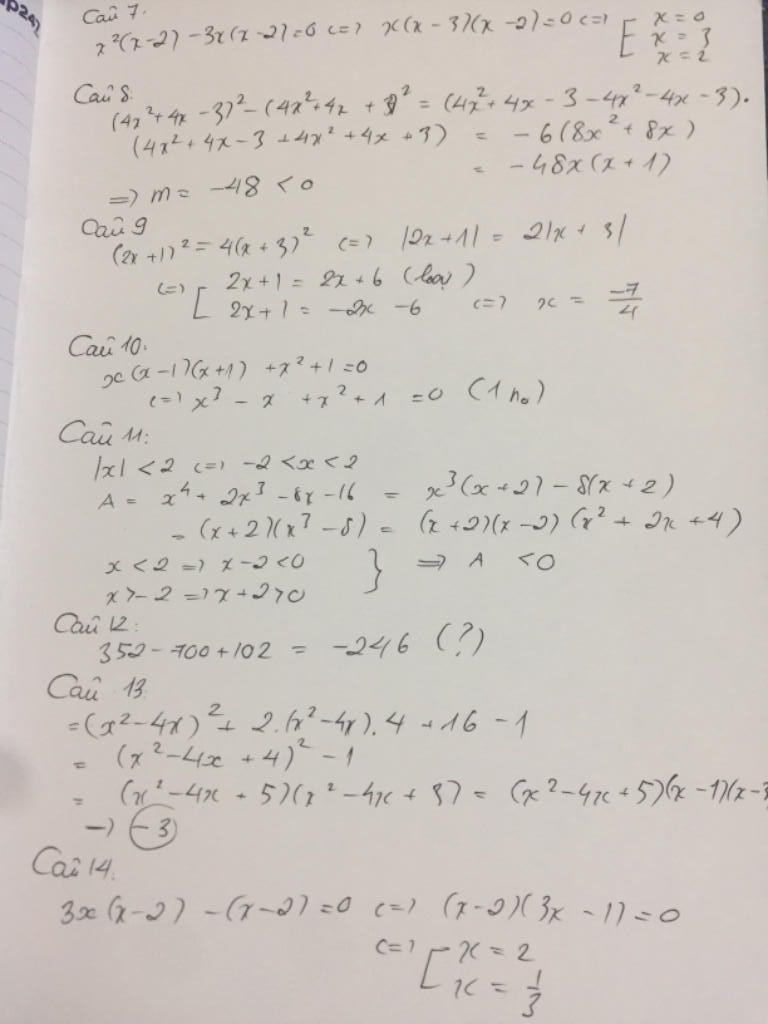 Câu 7:
x²(x-2) - 3x(x-2) = 0 <=> x(x-3)(x-2) = 0 <=> [ x = 0
x = 3
x = 2
Câu 8:
(4x²+4x-3)² - (4x²+4x+3)² = (4x²+4x-3-4x²-4x-3).
(4x²+4x-3+4x²+4x+3) = -6(8x²+8x)
= -48x(x+1)
=> m = -48 < 0
Câu 9
(2x+1)² = 4(x+3)² <=> |2x+1| = 2|x+3|
<=> [ 2x+1 = 2x+6 (loại)
2x+1 = -2x-6 <=> x = -7/4
Câu 10:
x(x-1)(x+1) + x²+1 = 0
<=> x³ - x + x² + 1 = 0 (1 no)
Câu 11:
|x| < 2 <=> -2 < x < 2
A = x⁴ + 2x³ - 8x - 16 = x³(x+2) - 8(x+2)
= (x+2)(x³-8) = (x+2)(x-2)(x²+2x+4)
x < 2 => x-2 < 0 } => A < 0
x > -2 => x+2 > 0
Câu 12:
352 - 700 + 102 = -246 (?)
Câu 13
= (x²-4x)² + 2.(x²-4x).4 + 16 - 1
= (x²-4x+4)² - 1
= (x²-4x+5)(x²-4x+3) = (x²-4x+5)(x-1)(x-3
-> -3
Câu 14:
3x(x-2) - (x-2) = 0 <=> (x-2)(3x-1) = 0
<=> [ x = 2
x = 1/3